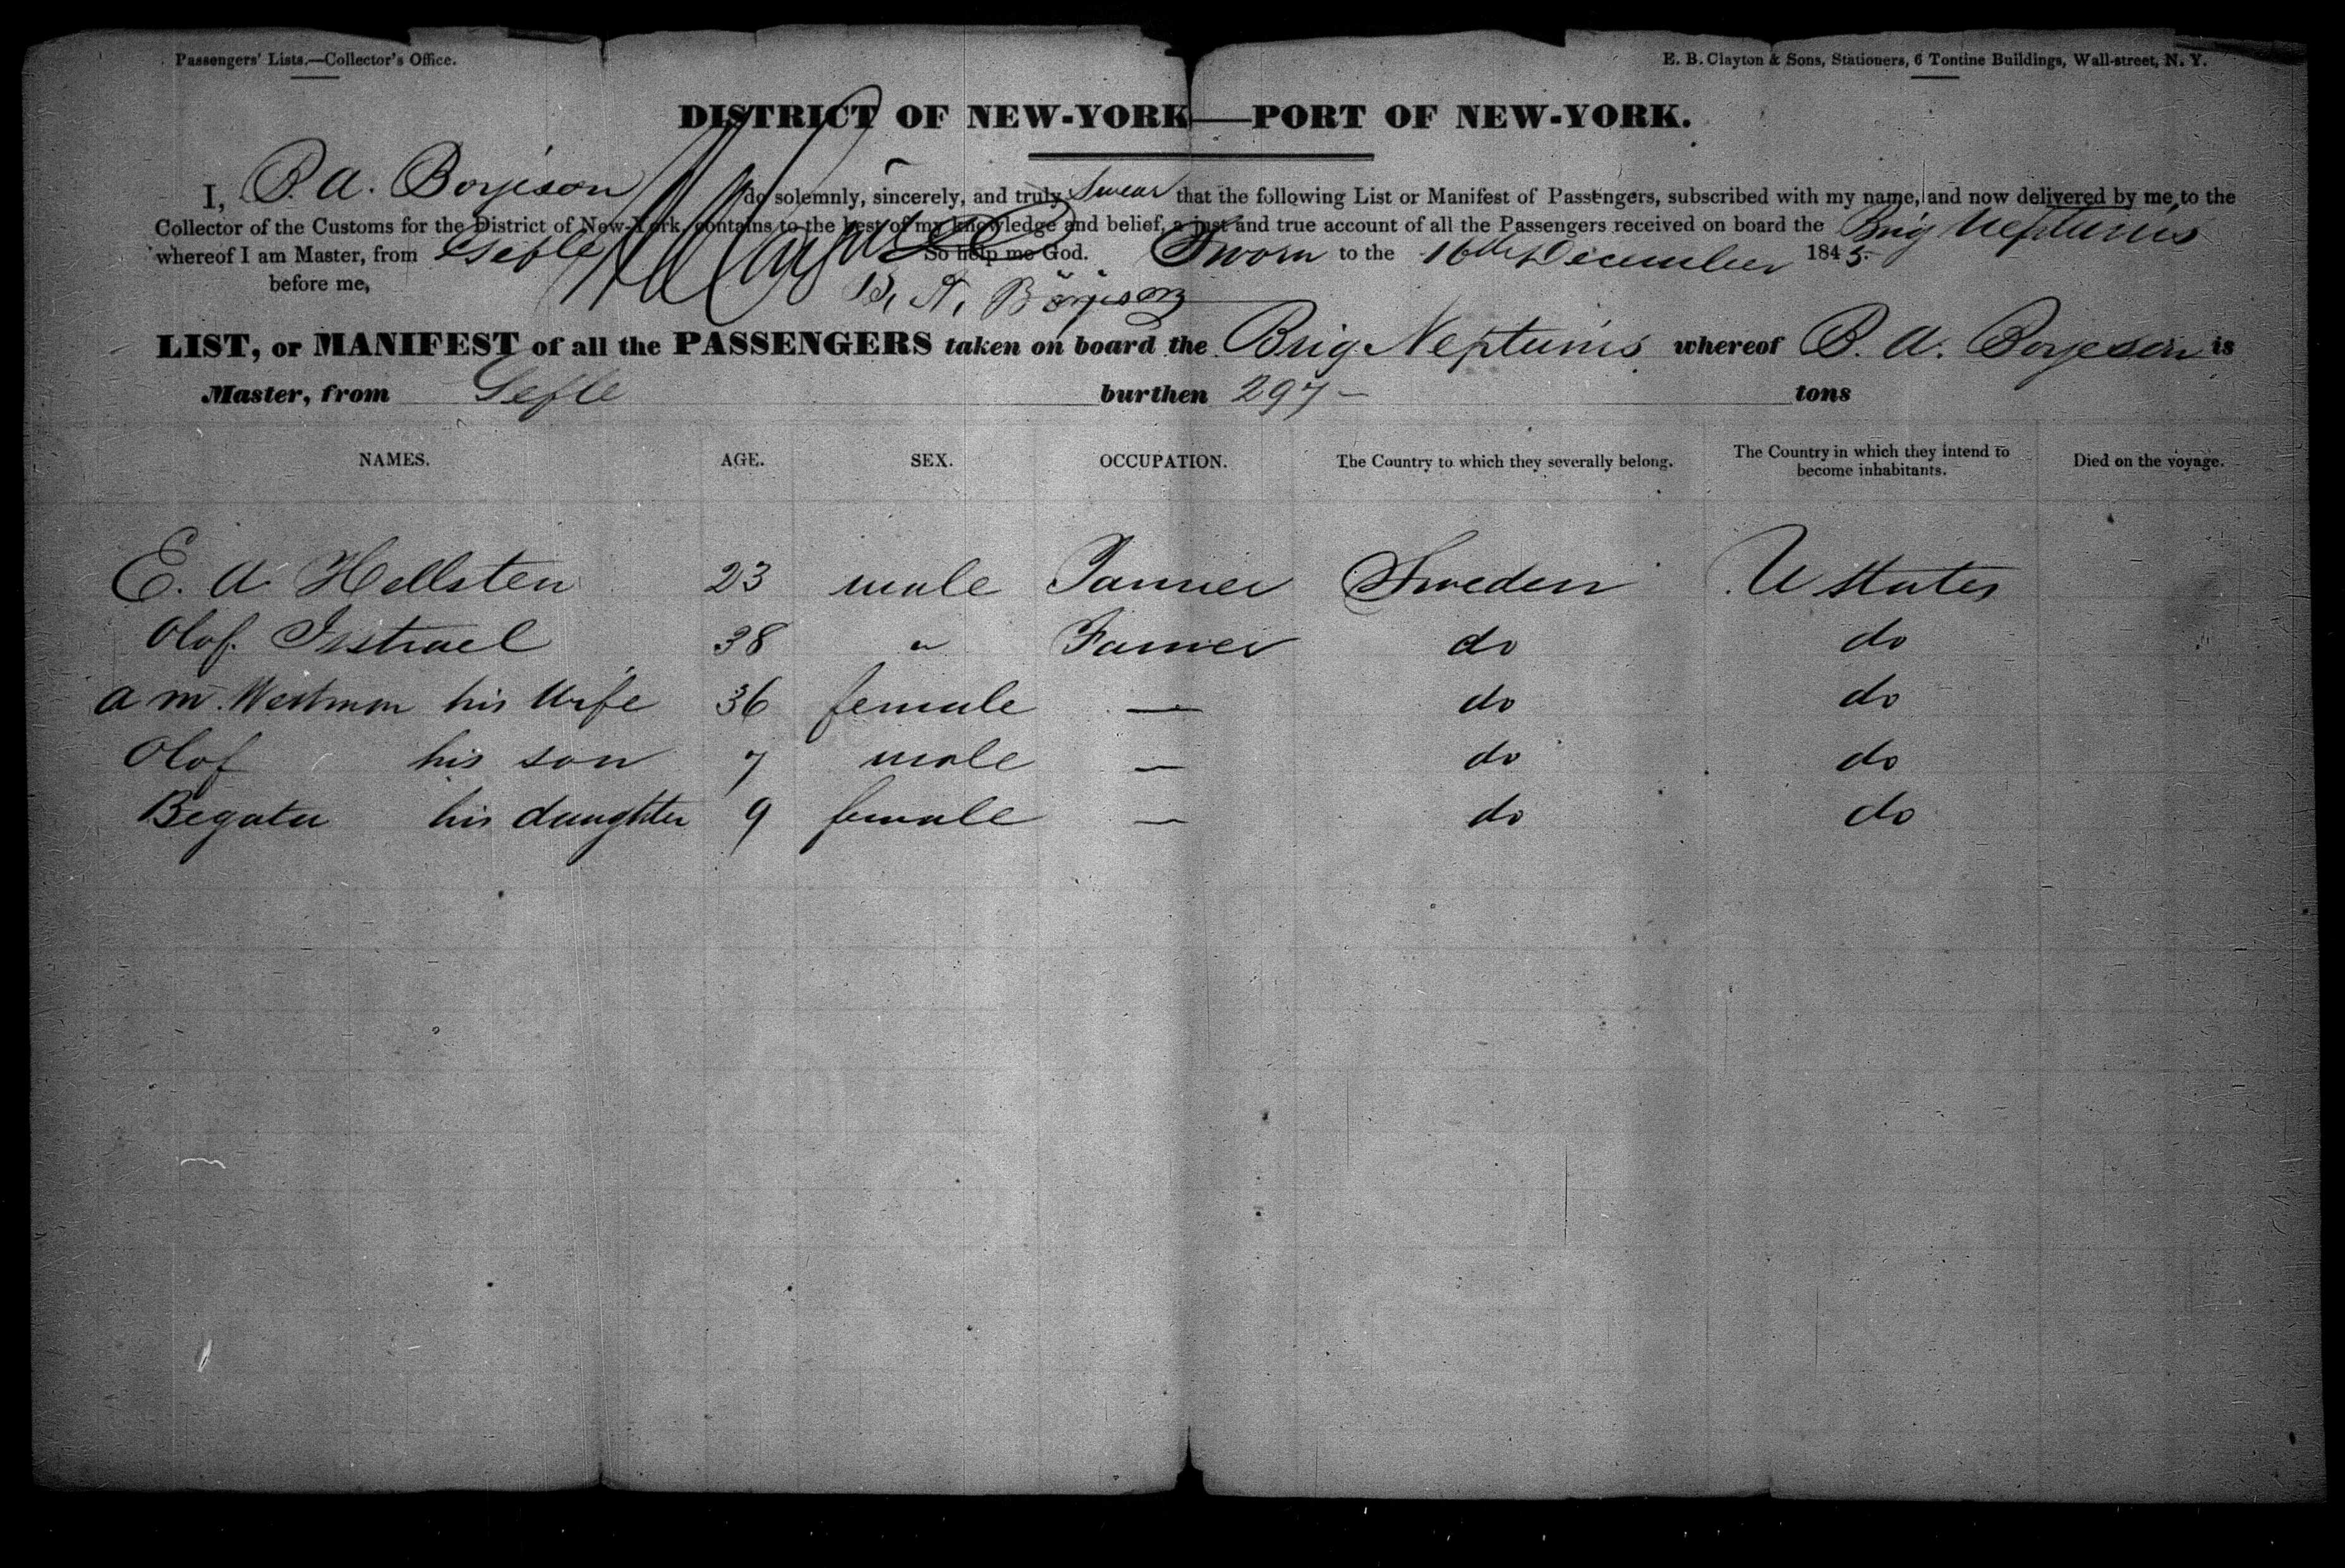 Passengers' Lists.—Collector's Office.
E. B. Clayton & Sons, Stationers, 6 Tontine Buildings, Wall-street, N. Y.
DISTRICT OF NEW-YORK—PORT OF NEW-YORK.
I, B. A. Borjeson do solemnly, sincerely, and truly swear that the following List or Manifest of Passengers, subscribed with my name, and now delivered by me to the
Collector of the Customs for the District of New-York, contains to the best of my knowledge and belief, a just and true account of all the Passengers received on board the Brig Neptunis
whereof I am Master, from Gefle So help me God. Sworn to the 16th December 1845.
before me, B. A. Börjeson
LIST, or MANIFEST of all the PASSENGERS taken on board the Brig Neptunis whereof B. A. Borjeson is
Master, from Gefle burthen 297 — tons
NAMES. AGE. SEX. OCCUPATION. The Country to which they severally belong. The Country in which they intend to become inhabitants. Died on the voyage.
E. A Hellsten 23 male Tanner Sweden U States
Olof. Isstrael 38 " Famer do do
a m. Westman his Wife 36 female — do do
Olof his son 7 male — do do
Begata his daughter 9 female — do do